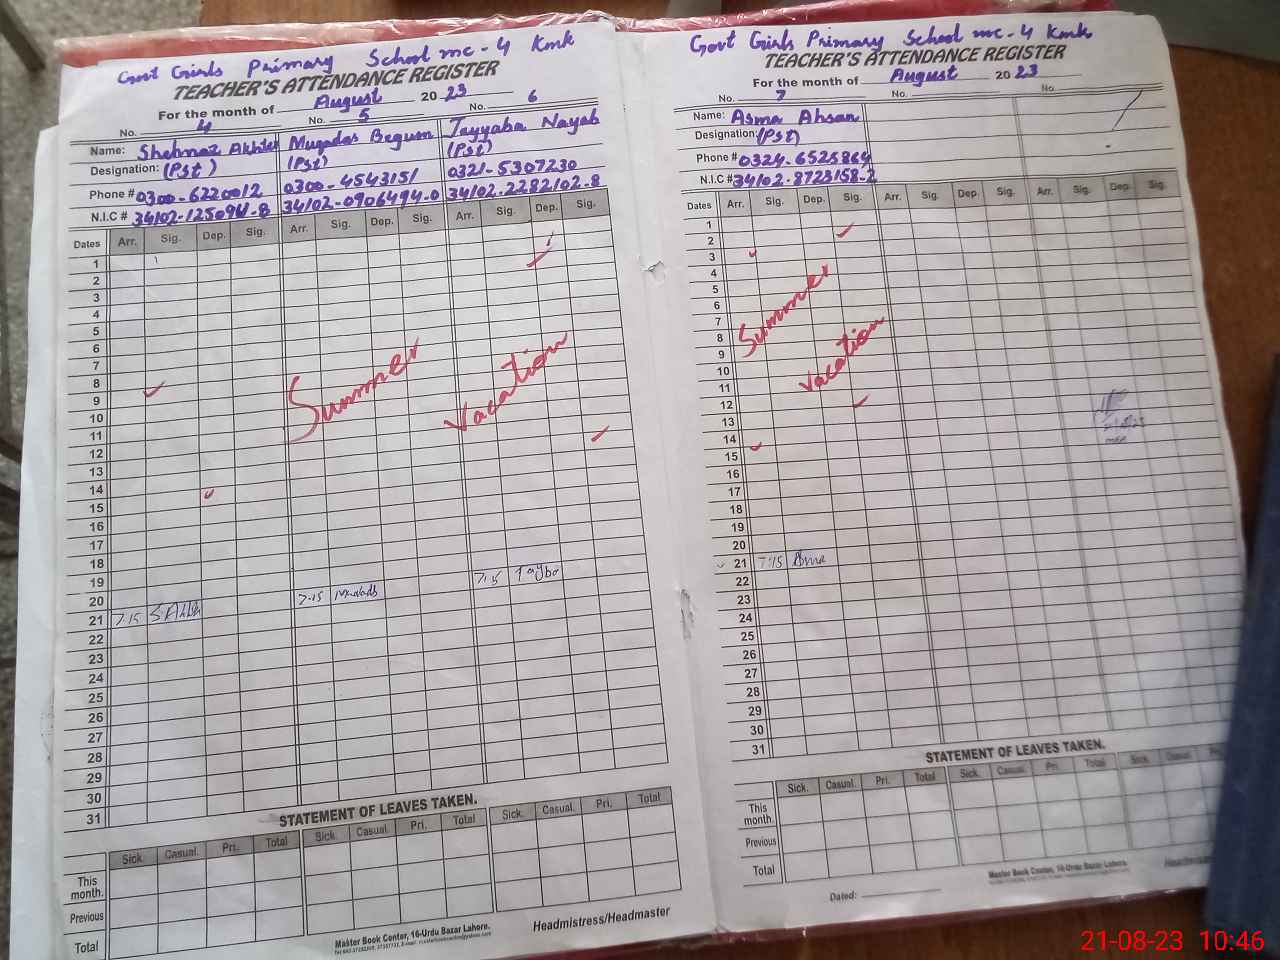 Govt Girls Primary School mc-4 Kmk
TEACHER'S ATTENDANCE REGISTER
For the month of August 2023
No. 4 No. 5 No. 6
Name: Shehnaz Akhter Muqadas Begum Tayyaba Nayab
Designation: (Pst) (Pst) (Pst)
Phone # 0300-6220012 0300-4543151 0321-5307230
N.I.C # 34102-1250941-8 34102-0906494-0 34102-2282102-8
Dates Arr. Sig. Dep. Sig. Arr. Sig. Dep. Sig. Arr. Sig. Dep. Sig.
1
2
3
4
5
6
7
8
9
10
11
12
13
14
15
16
17
18
19
20
21 7:15 S.Akhtar 7:15 7:15 Tayyba
22
23
24
25
26
27
28
29
30
31
Summer Vacation
STATEMENT OF LEAVES TAKEN.
Sick. Casual. Pri. Total Sick. Casual. Pri. Total Sick. Casual. Pri. Total
This month.
Previous
Total
Master Book Center, 16-Urdu Bazar Lahore.
Headmistress/Headmaster
Govt Girls Primary School mc-4 Kmk
TEACHER'S ATTENDANCE REGISTER
For the month of August 2023
No. 7 No. No.
Name: Asma Ahsan
Designation: (Pst)
Phone # 0324-6525864
N.I.C # 34102-8723158-2
Dates Arr. Sig. Dep. Sig. Arr. Sig. Dep. Sig. Arr. Sig. Dep. Sig.
1
2
3
4
5
6
7
8
9
10
11
12
13
14
15
16
17
18
19
20
21 7:15 Asma
22
23
24
25
26
27
28
29
30
31
Summer
Vacation
STATEMENT OF LEAVES TAKEN.
Sick. Casual. Pri. Total Sick. Casual. Pri. Total Sick. Casual.
This month.
Previous
Total
Master Book Center, 16-Urdu Bazar Lahore.
Dated:
21-08-23 10:46